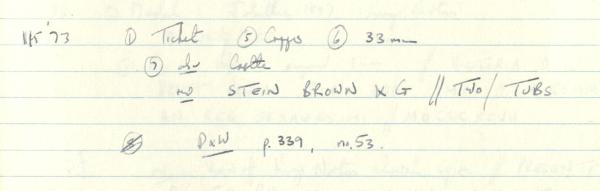 1/5 '73 ① Ticket ⑤ Copper ⑥ 33 mm
⑦ obv Castle
rev STEIN BROWN & Co // TWO / TUBS
⑧ D&W p. 339, no. 53.